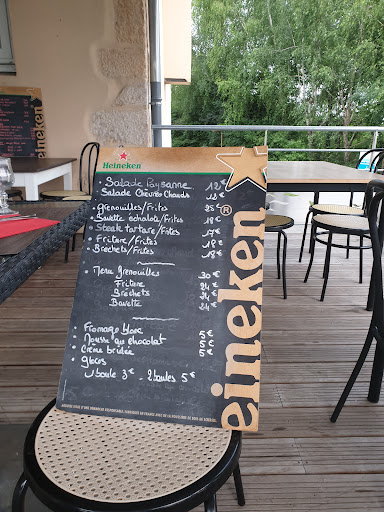 Heineken
Salade Paysanne 12€
Salade Chèvres Chauds 12€
• Grenouilles/frites 25€
• Bavette échalot/frites
• Steak tartare/frites 17€
• Friture/frites 18€
• Brochets/frites 18€
• Menu Grenouilles 30€
Friture 24€
Brochets 24€
Bavette 24€
• Fromage blanc 5€
• Mousse au chocolat 5€
• Crème brulée 5€
• glaces
1 boule 3€ - 2 boules 5€
eineken®